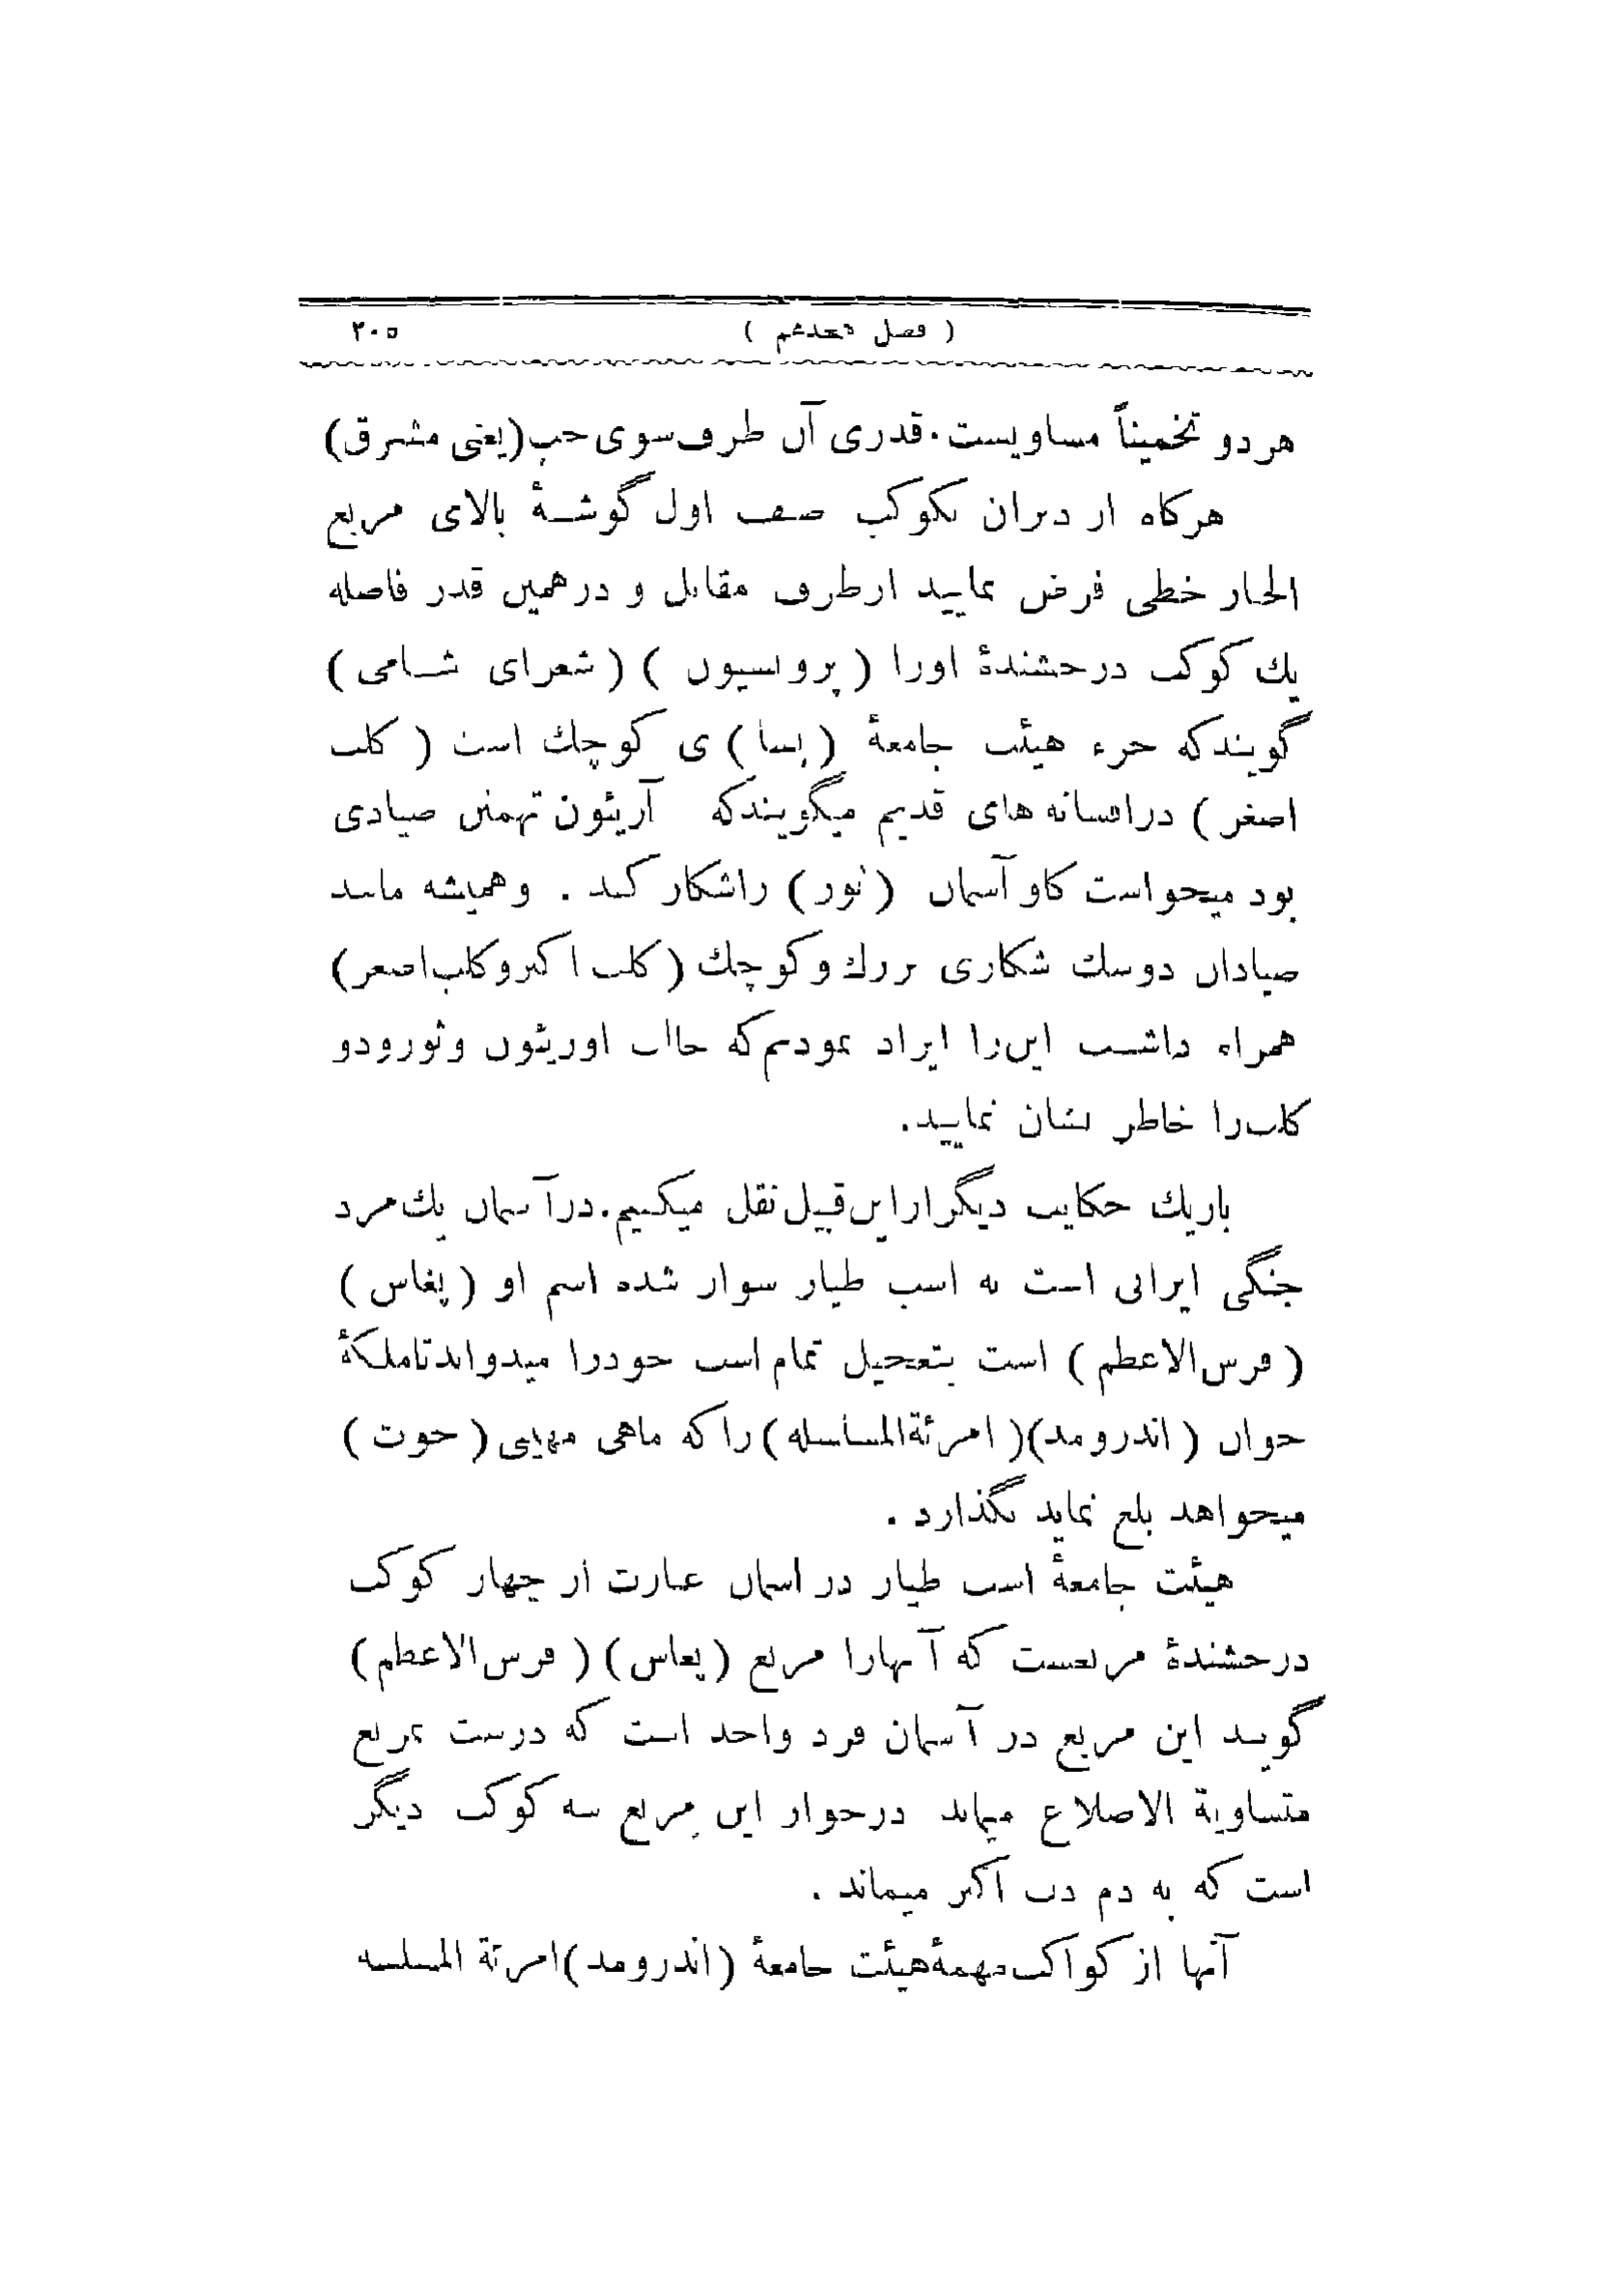 ( فصل هیجدهم ) ۲۰۵
هر دو تخمیناً مساویست. قدری آن طرف سوی چپ (یعنی مشرق)
هرکاه از دبران بکوکب صف اول گوشهٔ بالای مربع
الجبار خطی فرض نمایید ازطرف مقابل و در همین قدر فاصله
یك کوکب درخشندهٔ اورا ( پروسیون ) ( شعرای شامی )
گویندکه جزء هیئت جامعهٔ ( ) ی کوچك است ( کلب
اصغر ) درافسانه های قدیم میگویندکه آریئون تهمتن صیادی
بود میخواست کاو آسمان ( ثور ) راشکار کند . وهمیشه مانند
صیادان دوسك شکاری بزرك وکوچك ( کلب اکبر وکلب اصغر )
همراه داشت این را ایراد نمودیم که اوریئون وثورودو
کلب را خاطر نشان نمایید .
باریك حکایت دیگر ازاین قبیل نقل میکنیم. درآسمان یك مرد
جنگی ایرانی است به اسب طیار سوار شده اسم او ( پغاس )
( فرس الاعظم ) است بتعجیل تمام اسب خودرا میدواند تاملکهٔ
جوان ( اندرومد ) ( امرئة المسلسله ) را که ماهی مهیبی ( حوت )
میخواهد بلع نماید نگذارد .
هیئت جامعهٔ اسب طیار در اسمان عبارت از چهار کوکب
درخشندهٔ مربعست که آنهارا مربع ( پغاس ) ( فرس الاعظم )
گویند این مربع در آسمان فرد واحد است که درست بمربع
متساویة الاضلاع میماند درجوار این مربع سه کوکب دیگر
است که به دم دب اکبر میماند .
آنها از کواکب مهمهٔ هیئت جامعهٔ ( اندرومد ) امرئة المسلسه